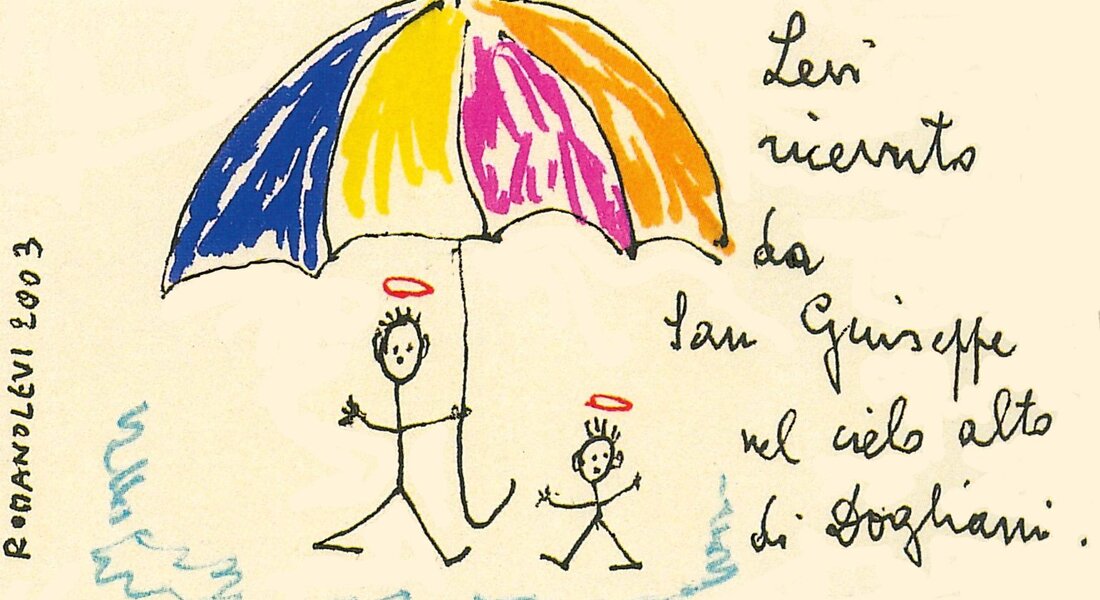 ROMANOLEVI 2003
Levi
ricevuto
da
San Giuseppe
nel cielo alto
di Dogliani.